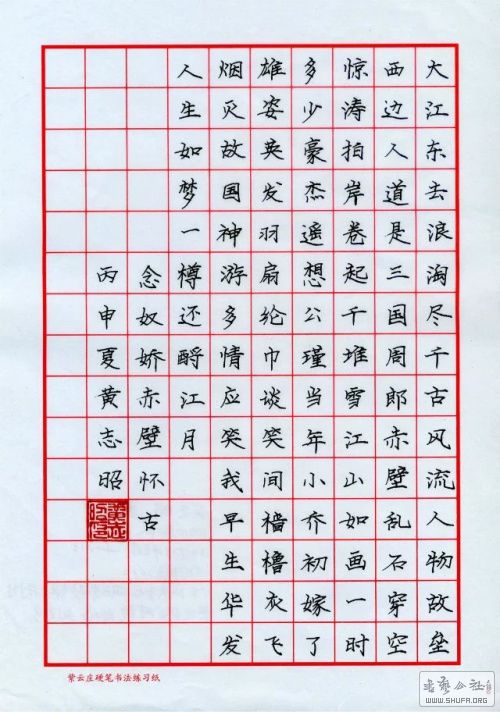 大江东去浪淘尽千古风流人物故垒
西边人道是三国周郎赤壁乱石穿空
惊涛拍岸卷起千堆雪江山如画一时
多少豪杰遥想公瑾当年小乔初嫁了
雄姿英发羽扇纶巾谈笑间樯橹衣飞
烟灭故国神游多情应笑我早生华发
人生如梦一樽还酹江月
念奴娇赤壁怀古
丙申夏黄志昭
紫云庄硬笔书法练习纸
WWW.SHUFA.ORG